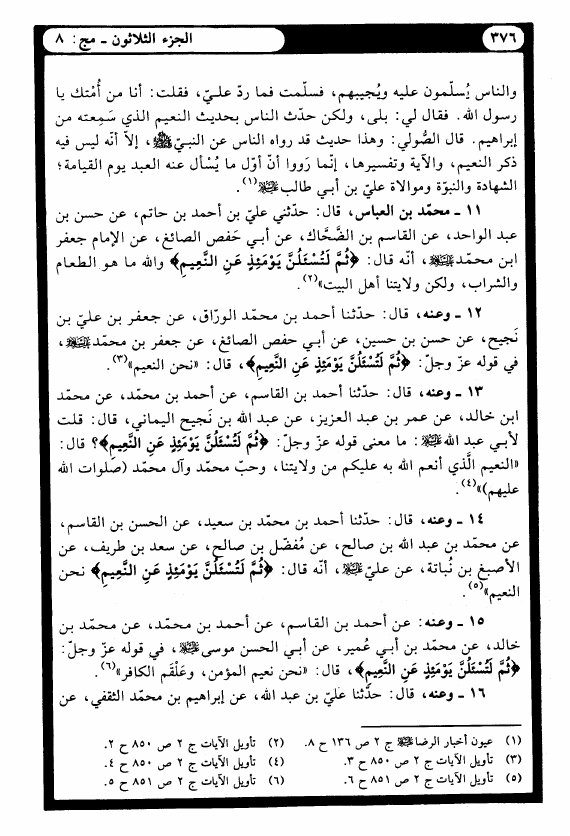 ٣٧٦
الجزء الثلاثون ـ مج: ٨
والناس يُسلّمون عليه ويُجيبهم، فسلّمت فما ردّ عليّ، فقلت: أنا من أُمّتك يا
رسول الله. فقال لي: بلى، ولكن حدّث الناس بحديث النعيم الذي سَمِعته من
إبراهيم. قال الصُّولي: وهذا حديث قد رواه الناس عن النبيّ ﷺ، إلاّ أنّه ليس فيه
ذكر النعيم، والآية وتفسيرها، إنّما رَووا أنّ أوّل ما يُسأل عنه العبد يوم القيامة؛
الشهادة والنبوّة وموالاة عليّ بن أبي طالب (١).
١١ ـ محمّد بن العباس، قال: حدّثني عليّ بن أحمد بن حاتم، عن حسن بن
عبد الواحد، عن القاسم بن الضَّحّاك، عن أبي حَفص الصائغ، عن الإمام جعفر
ابن محمّد ، أنّه قال: ﴿ثُمَّ لَتُسْئَلُنَّ يَوْمَئِذٍ عَنِ النَّعِيمِ﴾ والله ما هو الطعام
والشراب، ولكن ولايتنا أهل البيت»(٢).
١٢ ـ وعنه، قال: حدّثنا أحمد بن محمّد الورّاق، عن جعفر بن عليّ بن
نَجيح، عن حسن بن حسين، عن أبي حفص الصائغ، عن جعفر بن محمّد ،
في قوله عزّ وجلّ: ﴿ثُمَّ لَتُسْئَلُنَّ يَوْمَئِذٍ عَنِ النَّعِيمِ﴾، قال: «نحن النعيم»(٣).
١٣ ـ وعنه، قال: حدّثنا أحمد بن القاسم، عن أحمد بن محمّد، عن محمّد
ابن خالد، عن عمر بن عبد العزيز، عن عبد الله بن نَجيح اليماني، قال: قلت
لأبي عبد الله : ما معنى قوله عزّ وجلّ: ﴿ثُمَّ لَتُسْئَلُنَّ يَوْمَئِذٍ عَنِ النَّعِيمِ﴾؟ قال:
«النعيم الَّذي أنعم الله به عليكم من ولايتنا، وحبّ محمّد وآل محمّد (صلوات الله
عليهم)»(٤).
١٤ ـ وعنه، قال: حدّثنا أحمد بن محمّد بن سعيد، عن الحسن بن القاسم،
عن محمّد بن عبد الله بن صالح، عن مُفضّل بن صالح، عن سعد بن طريف، عن
الأصبغ بن نُباتة، عن عليّ ، أنّه قال: ﴿ثُمَّ لَتُسْئَلُنَّ يَوْمَئِذٍ عَنِ النَّعِيمِ﴾ نحن
النعيم»(٥).
١٥ ـ وعنه: عن أحمد بن القاسم، عن أحمد بن محمّد، عن محمّد بن
خالد، عن محمّد بن أبي عُمير، عن أبي الحسن موسى ، في قوله عزّ وجلّ:
﴿ثُمَّ لَتُسْئَلُنَّ يَوْمَئِذٍ عَنِ النَّعِيمِ﴾، قال: «نحن نعيم المؤمن، وعَلْقَم الكافر»(٦).
١٦ ـ وعنه، قال: حدّثنا عليّ بن عبد الله، عن إبراهيم بن محمّد الثقفي، عن
(١) عيون أخبار الرضا ج ٢ ص ١٣٦ ح ٨. (٢) تأويل الآيات ج ٢ ص ٨٥٠ ح ٢.
(٣) تأويل الآيات ج ٢ ص ٨٥٠ ح ٣. (٤) تأويل الآيات ج ٢ ص ٨٥٠ ح ٤.
(٥) تأويل الآيات ج ٢ ص ٨٥١ ح ٦. (٦) تأويل الآيات ج ٢ ص ٨٥١ ح ٥.